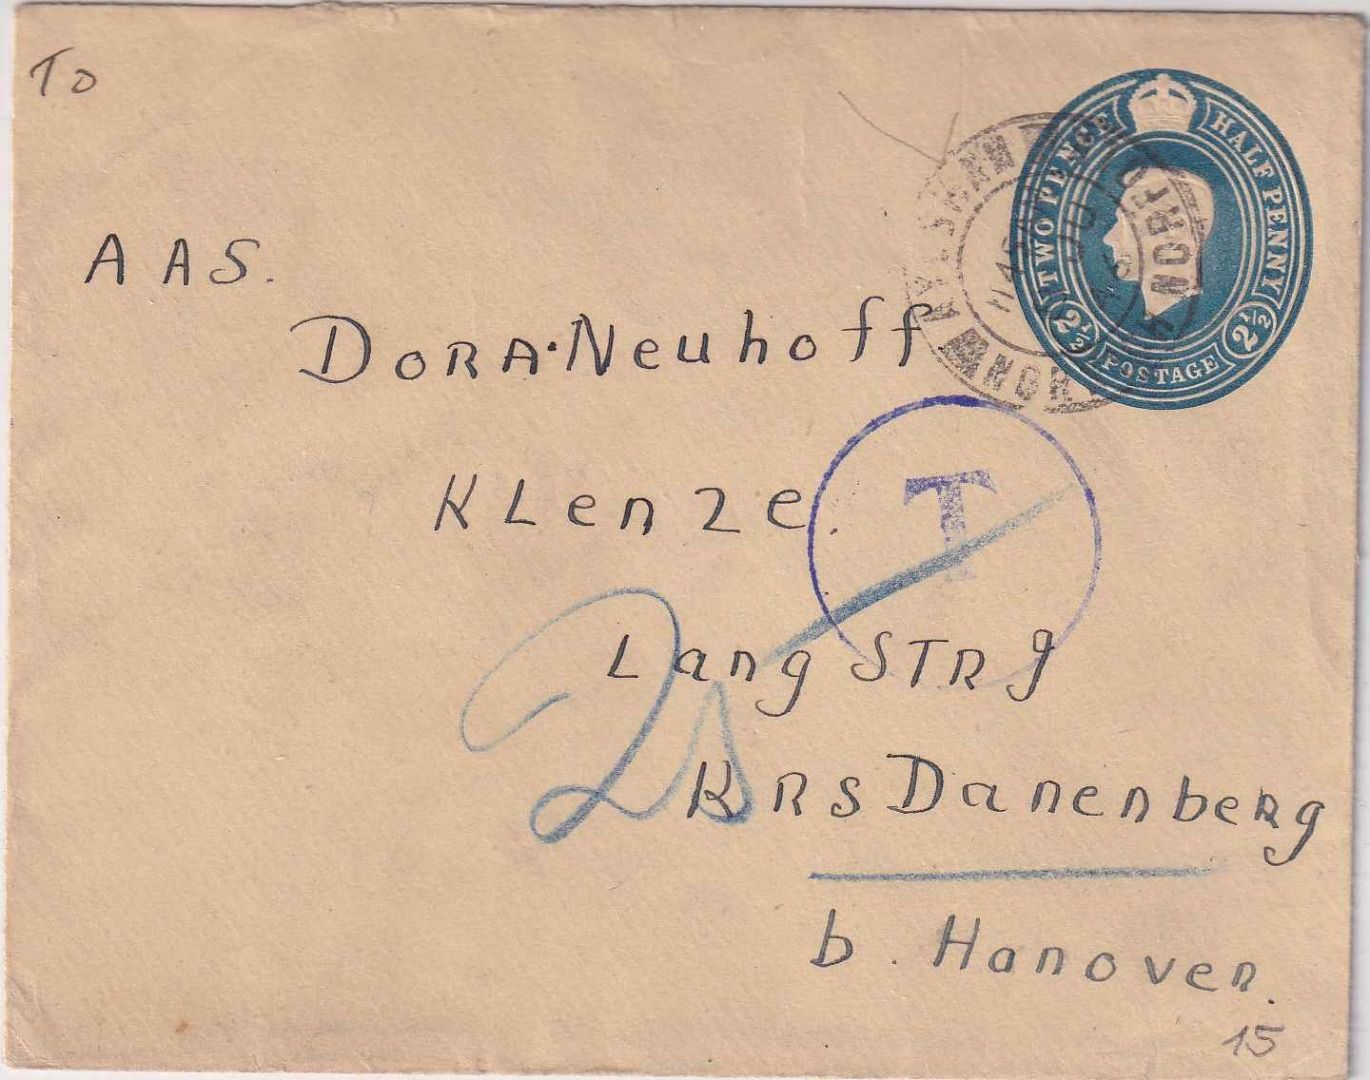 To
TWO PENCE HALF PENNY
2½ POSTAGE 2½
NORFOLK
AAS.
DORA·Neuhoff
T
KLenze.
Lang STR 9
KRS Danenberg
b. Hanover.
15